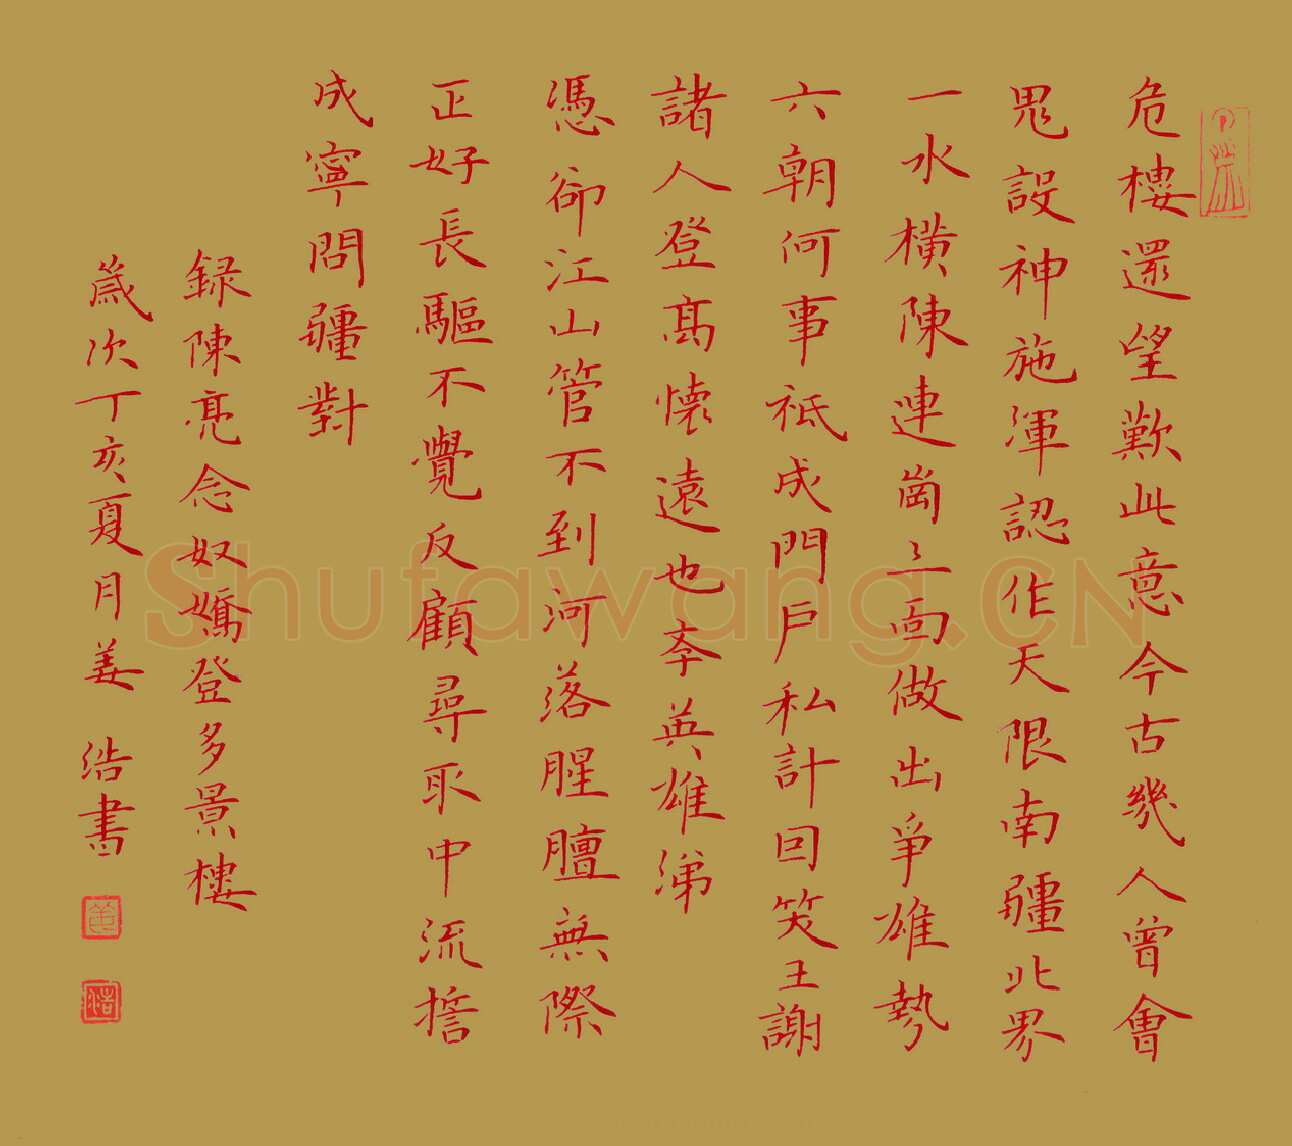 危樓還望歎此意今古幾人曾會
鬼設神施渾認作天限南疆北界
一水橫陳連崗三面做出爭雄勢
六朝何事衹成門戶私計回笑王謝
諸人登高懷遠也李英雄涕
憑卻江山管不到河落腥膻無際
正好長驅不覺反顧尋取中流誓
成寧問疆對
録陳亮念奴嬌登多景樓
歲次丁亥夏月姜浩書
Shufawang.CN